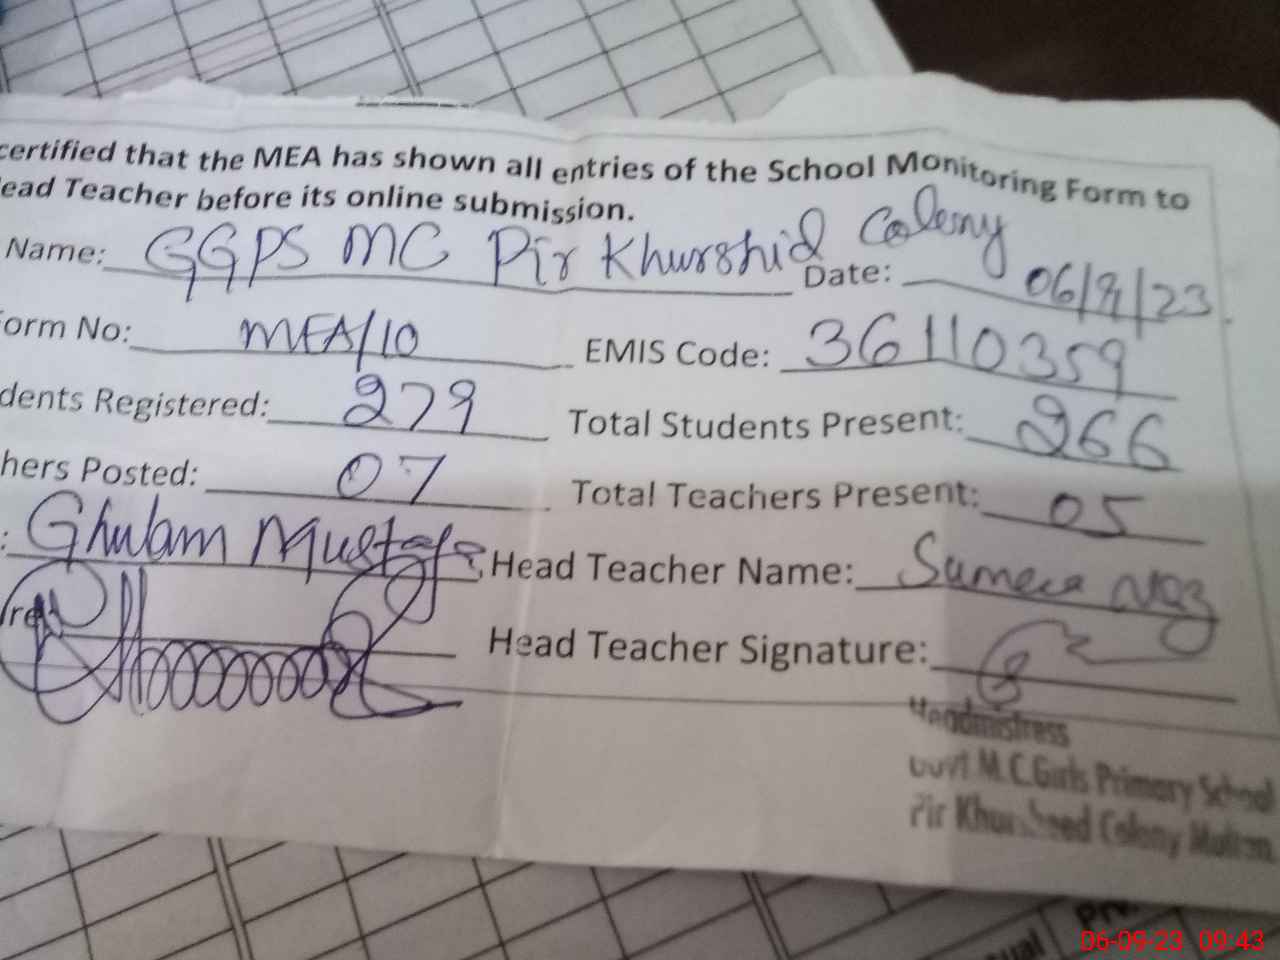 certified that the MEA has shown all entries of the School Monitoring Form to
ead Teacher before its online submission.
Name: GGPS MC Pir Khurshid Colony Date: 06/9/23
orm No: MEA/10 EMIS Code: 36110359
dents Registered: 279 Total Students Present: 266
hers Posted: 07 Total Teachers Present: 05
: Ghulam Mustafa Head Teacher Name: Sumera Naz
re: Head Teacher Signature:
Headmistress
Govt M.C.Girls Primary School
Pir Khursheed Colony Multan.
06-09-23 09:43